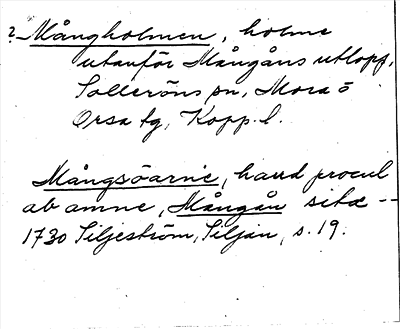 ?Mångholmen, holme
utanför Mångåns utlopp,
Solleröns sn, Mora o
Orsa tg, Kopp. l.
Mångsöarne, haud procul
ab amne, Mångån sitæ --
1730 Siljeström, Siljan, s. 19.